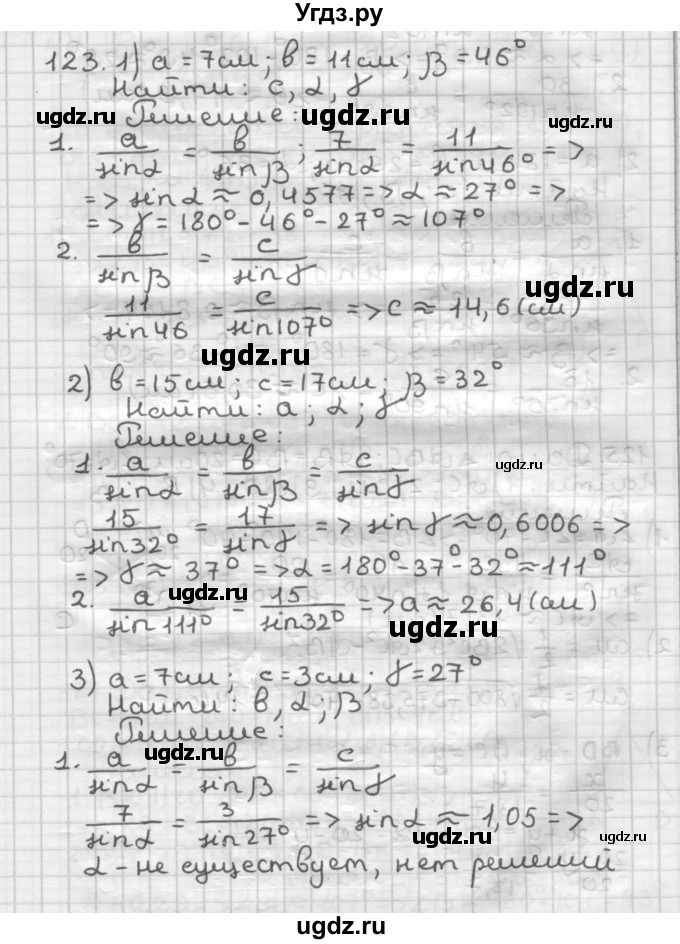 Угдз.ру
123. 1) a = 7см; в = 11см; β = 46°
Найти: c, α, γ
Решение:
1. a/sinα = в/sinβ; 7/sinα = 11/sin46° =>
=> sinα ≈ 0,4577 => α ≈ 27° =>
=> γ = 180° - 46° - 27° ≈ 107°
2. в/sinβ = c/sinγ
11/sin46 = c/sin107° => c ≈ 14,6 (см)
2) в = 15см; c = 17см; β = 32°
Найти: a; α; γ
Решение:
1. a/sinα = в/sinβ = c/sinγ
15/sin32° = 17/sinγ => sinγ ≈ 0,6006 =>
=> γ ≈ 37° => α = 180° - 37° - 32° ≈ 111°
2. a/sin111° = 15/sin32° => a ≈ 26,4 (см)
3) a = 7см; c = 3см; γ = 27°
Найти: в, α; β
Решение:
1. a/sinα = в/sinβ = c/sinγ
7/sinα = 3/sin27° => sinα ≈ 1,05 =>
α - не существует, нет решений
ugdz.ru
ugdz.ru
ugdz.ru
ugdz.ru
ugdz.ru
ugdz.ru
ugdz.ru
ugdz.ru
ugdz.ru
ugdz.ru
ugdz.ru
ugdz.ru